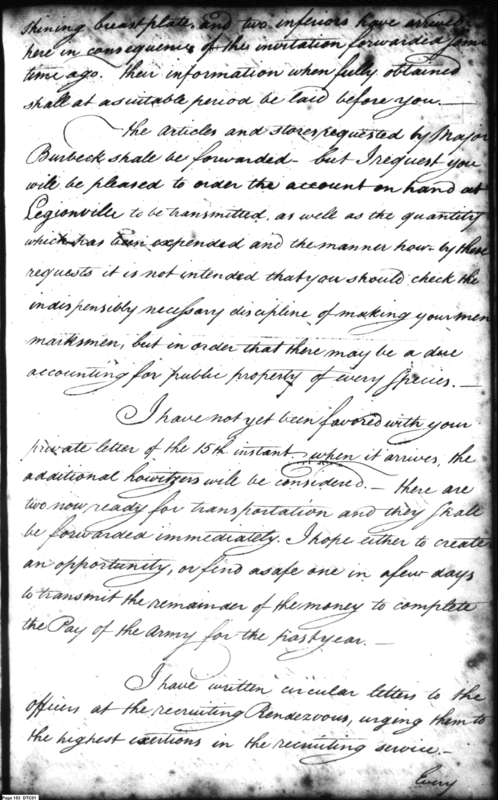 shining breast plate and two inferiors have arrived
here in consequence of the invitation forwarded some
time ago. Their information when fully obtained
shall at a suitable period be laid before you.—
The articles and stores requested by Major
Burbeck shall be forwarded – but I request you
will be pleased to order the account on hand at
Legionville to be transmitted, as well as the quantity
which has been expended and the manner how – by these
requests it is not intended that you should check the
indispensibly necessary discipline of making your men
marksmen, but in order that there may be a due
accounting for public property of every species.—
I have not yet been favored with your
private letter of the 15th instant when it arrives, the
additional howitzers will be considered.— there are
two now ready for transportation and they shall
be forwarded immediately. I hope either to create
an opportunity, or find a safe one in a few days
to transmit the remainder of the money to complete
the Pay of the Army for the past year.—
I have written circular letters to the
officers at the recruiting Rendezvous, urging them to
the highest exertions in the recruiting service.—
Every
Page 153 DTC01